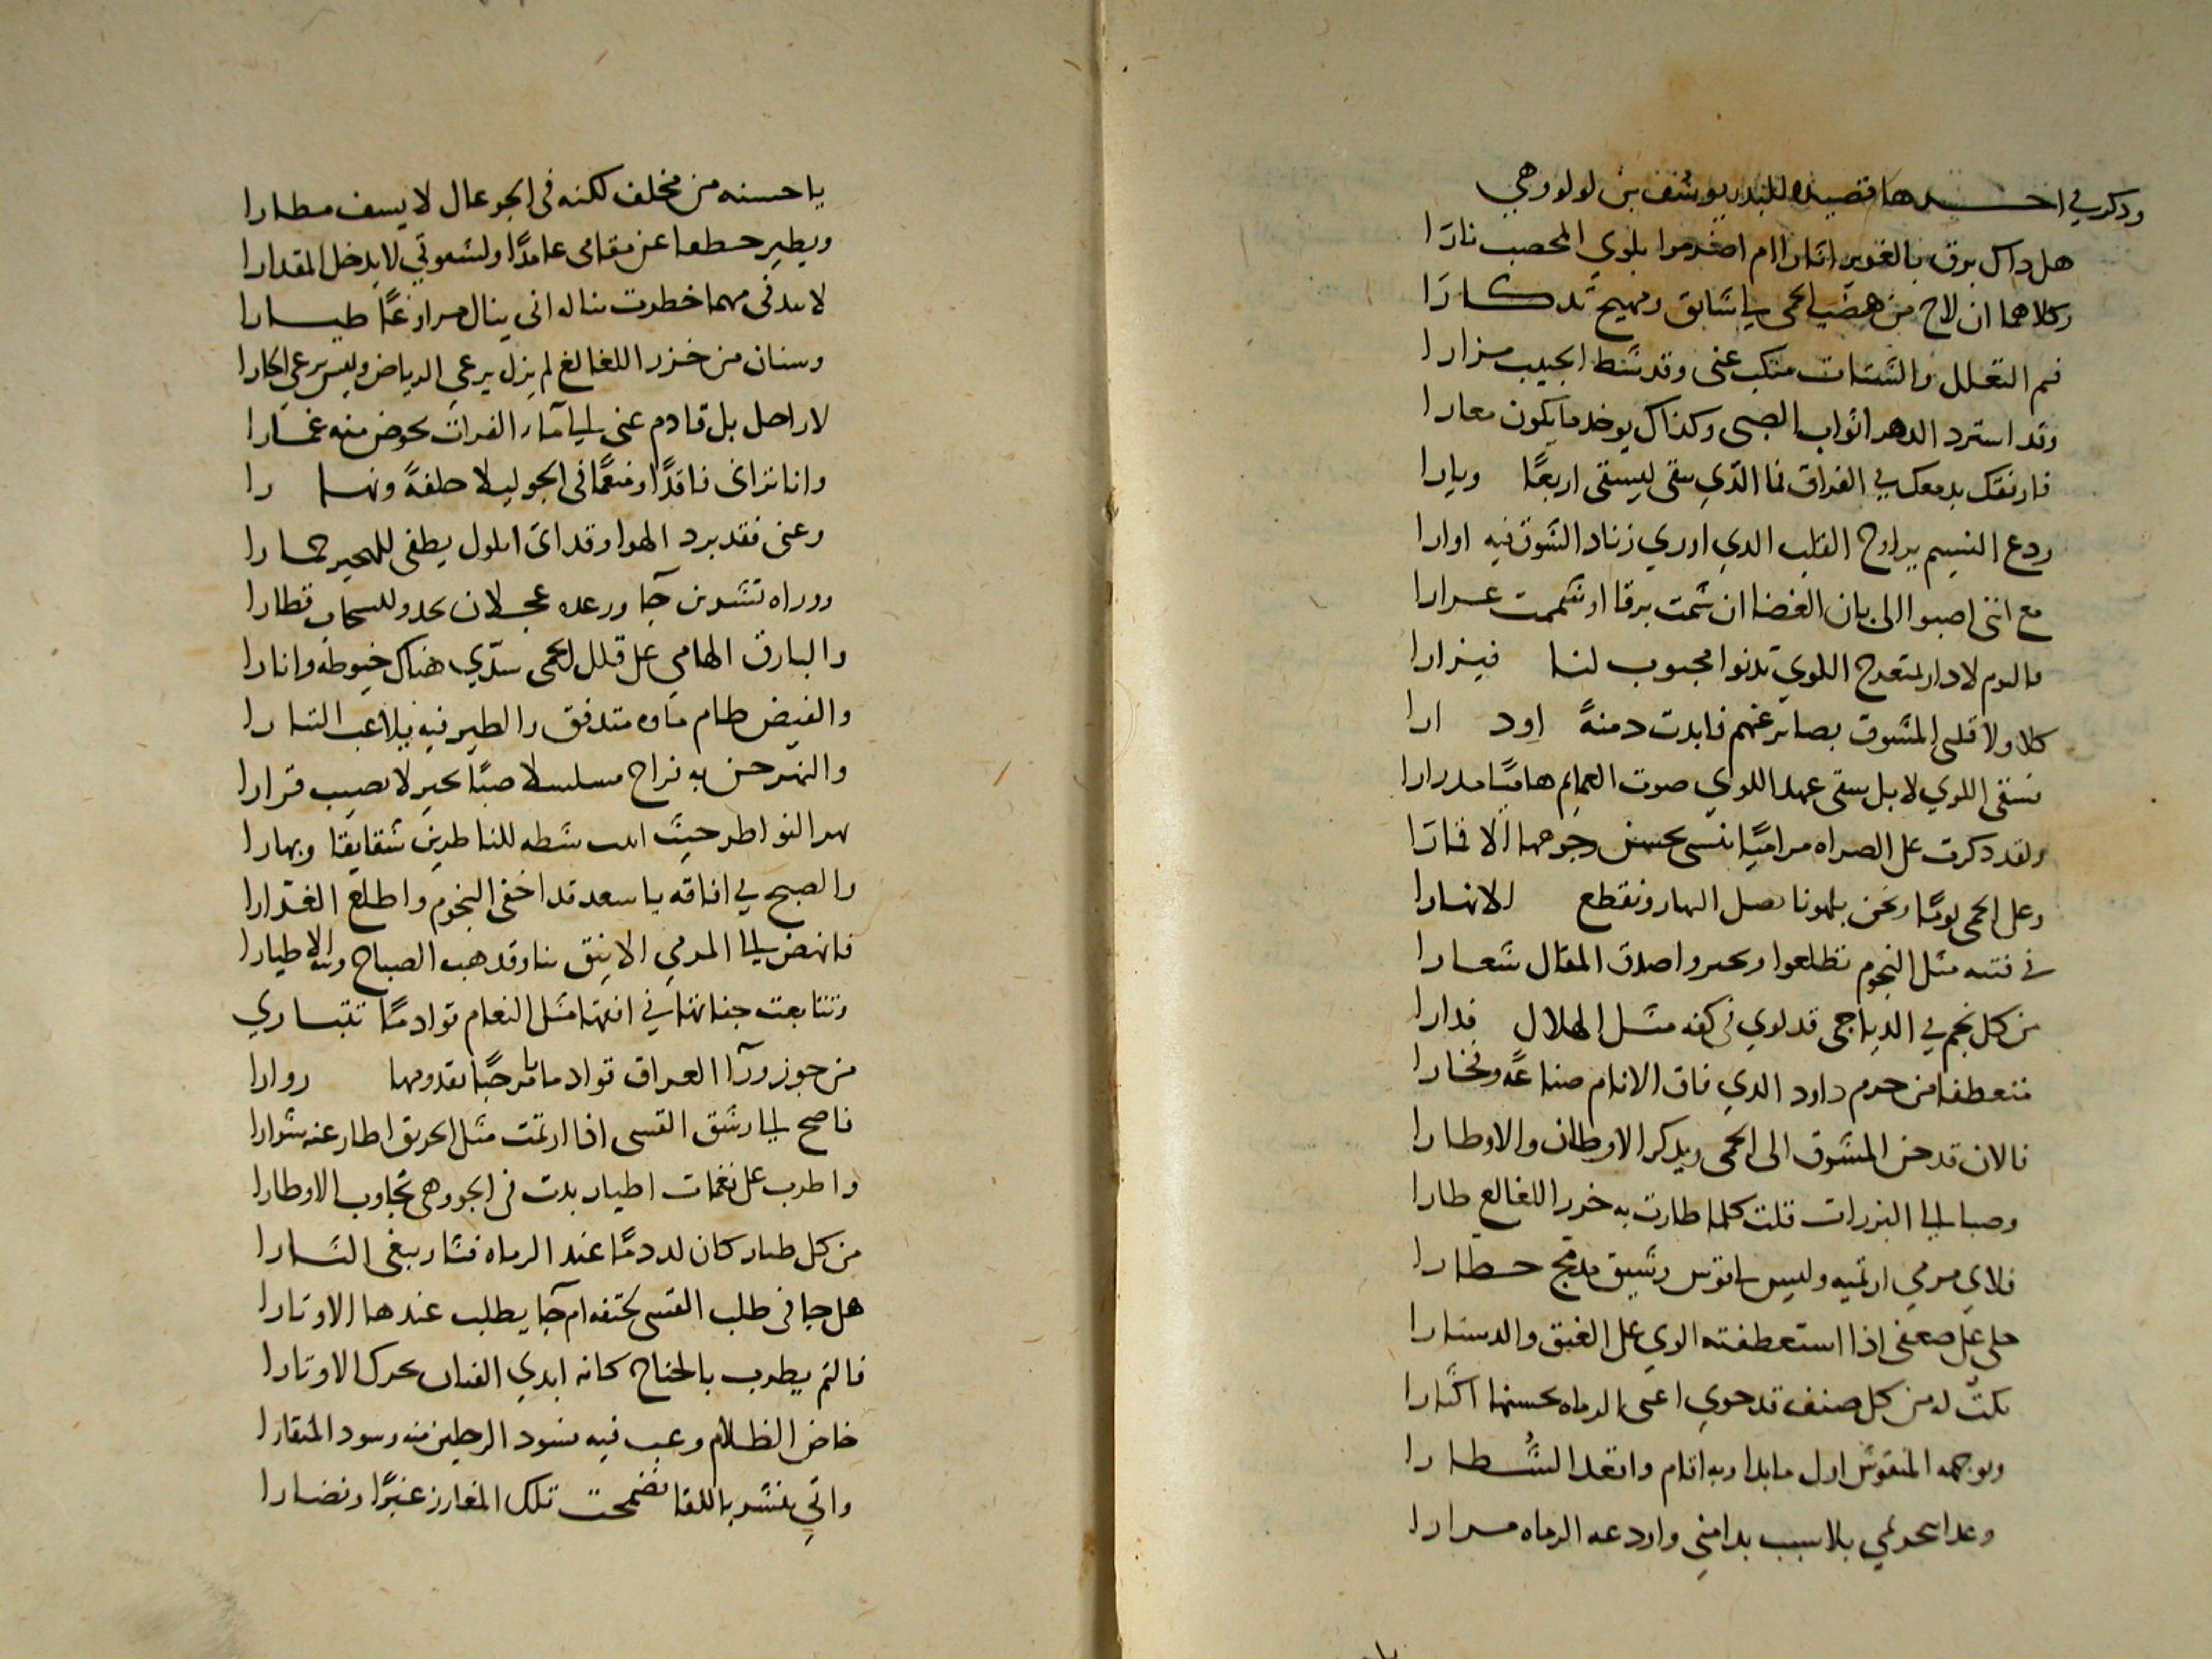 وذكر في اخــرها قصيده للبدر يوسف بن لولو وهي
هل ذاك برق بالغوير انارا ام اضرموا بلوي المحصب نارا
وكلاهما ان لاح من هضب الحمى لي شايق ومهيج تذكارا
فم التعلل والشتات منكب عني وقد شط الحبيب مزارا
وقد استرد الدهر اثواب الصبى وكذاك يوخذ ما يكون معارا
فارفق بدمعك في الفراق فما الذي يبقى ليسقى اربعًا وديارا
ودع النسيم يراوح القلب الذي اوري زناد الشوق فيه اوارا
مع انني اصبوا الى بان الغضا ان شمت برقا او شممت عرارا
فاليوم لا دار بمنعرج اللوي تدنوا بمحبوب لنا فيزارا
كلا ولا قلبي المشوق بصابر عنهم فابدت دمنة او دارا
فسقى اللوي لا بل سقى عهد اللوي صوت الغمايم هاميًا مدرارا
ولقد ذكرت على الصراه مراميًا ينسى بحسن وجوهها الاقمارا
وعلى الحمى يومًا ونحن بلهونا نصل النهار ونقطع الانهارا
في فتيه مثل النجوم تطلعوا وتخيروا صدق المقال شعارا
من كل نجم في الدياجي قد لوي في كفه مثل الهلال فدارا
متعطفا من حرم داود الذي فاق الانام صناعةً وفخارا
فالان قد حن المشوق الى الحمى ويذكر الاوطان والاوطارا
وصبا الى البرزات قلت كلما طارت به خزر اللغالع طارا
فلاي مرمي ارتميه وليس لي قوس رشيق مدمج خطارا
حلي على ضعفي اذا استعطفته الوي على العنق والدستارا
نكت له من كل صنف قد حوي اعيى الرماه بحسنها اكثارا
وبوجهه المنقوش اول ما بدا وبه اقام واقعد الشطارا
وغدا يحدلي بلا سبب بدا مني واودعه الرماه مرارا
يا حسنه من مخلف لكنه في الجو عال لا يسف مطارا
ويطير خطفا عن مقامي عامدًا ولشقوتي لا يدخل المقدارا
لا يدني مهما خطوت يناله اني ينال مراوغًا طيــارا
وسنان من خزر اللغالغ لم يزل يرعي الرياض وليس يرعي الجارا
لا راحل بل قادم عني الى ماء الفرات يخوض منه غمارا
وانا تراني ناقدًا ومنعمًا في الجو ليلا حلقةً ونهــا را
دعني فقد برد الهوا وقد اتى ايلول يطفي للهجير جمارا
ووراه تشرين جآ ورعده عجلان يحدو للسحاب قطارا
والبارق الهامي على قلل الحمى سدّي هناك خيوطه وانارا
والفيض طام ماوه متدفق والطير فيه يلاعب التيارا
والنهر جن به فراح مسلسلا صبًا بحير لا يصيب قرارا
بهر النواطر حيث انبت شطه للناظرين شقايقا وبهارا
والصبح في افاقه يا سعد قد اخفى النجوم واطلع الغرارا
فانهض الى المرمي الانيق بنا وقد هب الصباح ونبه الاطيارا
وتتابعت جفاتها في افقها مثل النعام قوادمًا تتبــاري
من جو زورآ العراق قوادما فمرحبًا بقدومها زوارا
فاصح الى رشق القسي اذا ارتمت مثل الحريق اطار عنه شرارا
واطرب على نغمات اطيار بدت في الجو وهي تجاوب الاوطارا
من كل طيار كان له دمًا عند الرماه فثار يبغي الثــارا
هل جا في طلب القسي لحتفه ام جآ يطلب عندها الاوتارا
فالتم يطرب بالجناح كانه ابدي الفنان يحرك الاوتارا
خاض الظلام وعب فيه فسود الرجلين منه وسود المنقارا
واتي فنشر باللقا تضمخت تلك المغارز عنبرًا ونضارا